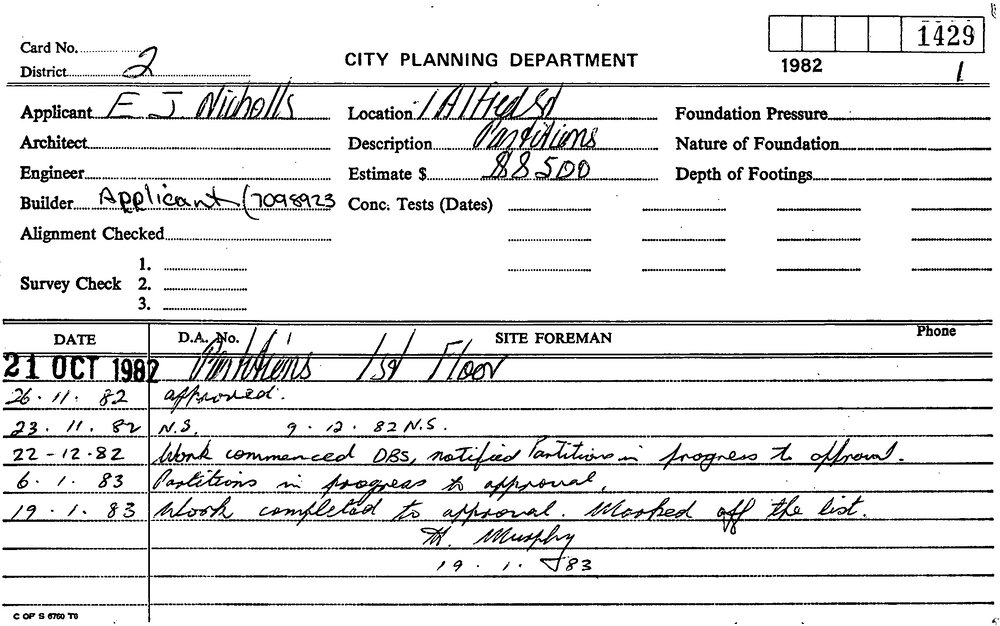 1429
Card No.
District 2
CITY PLANNING DEPARTMENT
1982
1
Applicant E J Nicholls
Location 1 Alfred St
Foundation Pressure
Architect
Description Partitions
Nature of Foundation
Engineer
Estimate $ $8500
Depth of Footings
Builder Applicant (7098923
Conc. Tests (Dates)
Alignment Checked
Survey Check 1.
2.
3.
DATE D.A. No. SITE FOREMAN Phone
21 OCT 1982 Partitions 1st Floor
26.11.82 approved.
23.11.82 N.S. 9.12.82 N.S.
22-12-82 Work commenced DBS, notified Partitions in progress to approval.
6.1.83 Partitions in progress to approval.
19.1.83 Work completed to approval. Marked off the list.
Murphy
19.1.83
C OF S 6760 T6